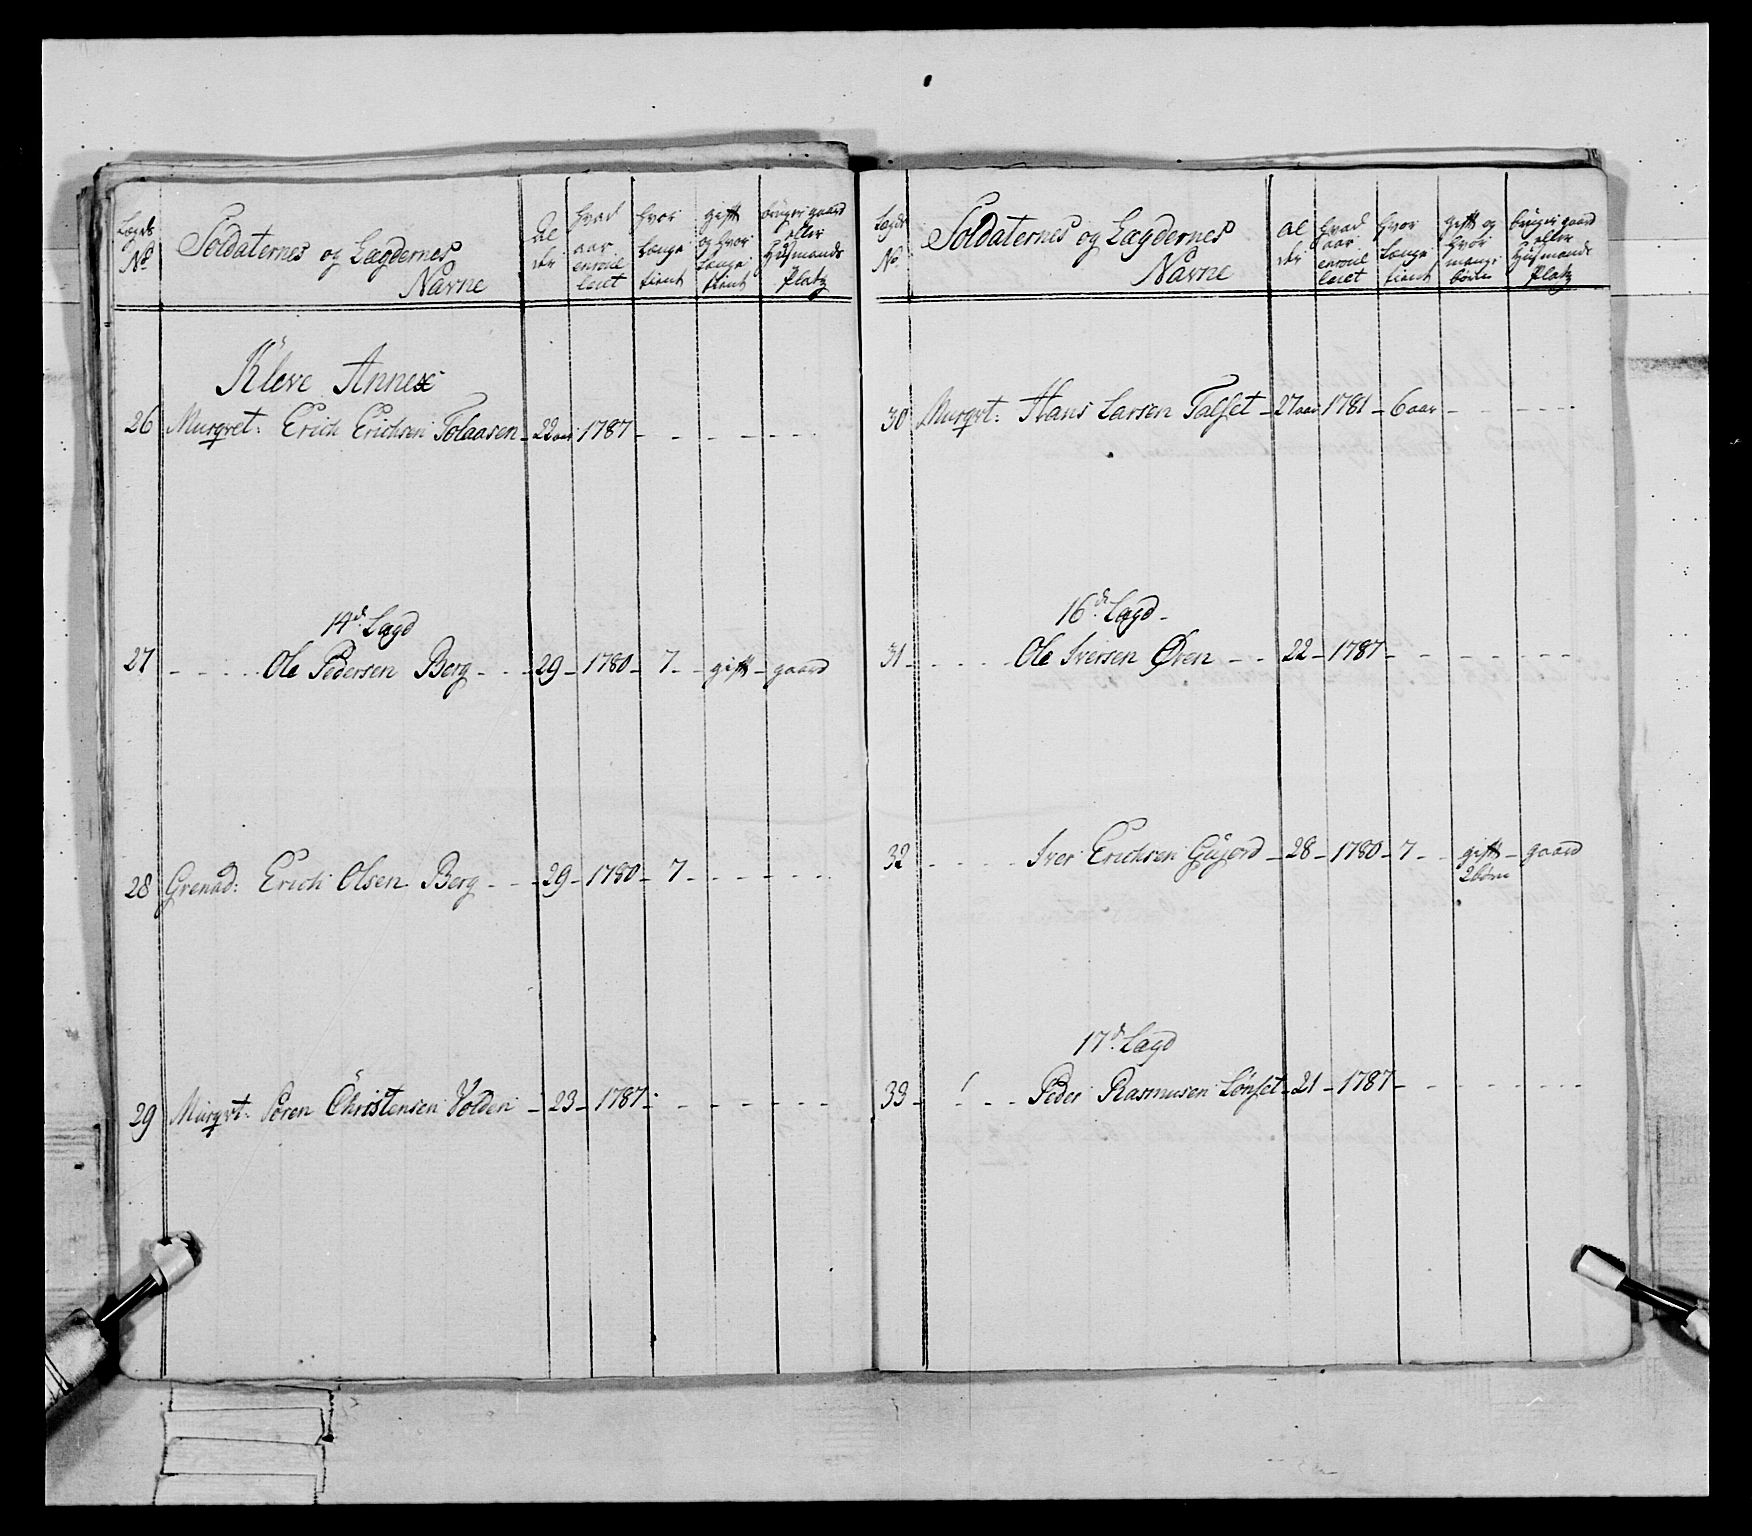 Lægds No
Soldaternes og Lægdernes Navne
Al der
hvad aar enroul leret
hvor Længe tient
gift og hvor Længe tient
bruger gaard eller Huusmands Platz
Kleve Annex
26 Murqvet: Erich Erichsen Tolaasen - 22 aar 1787 - - - - - -
14de Lægd
27 - - - - Ole Pedersen Berg - - - 29 - 1780 - 7 - - gift - gaard
28 Grenad: Erich Olsen Berg - - - 29 - 1780 - 7 - - - - - -
29 Murqvt: Søren Christensen Volden - 23 - 1787 - - - - - -
Lægds No
Soldaternes og Lægdernes Navne
al der
hvad aar enroul leret
hvor Længe tient
gift og hvor mange børn
bruger gaard eller Huusmands Platz
30 Murqvt: Hans Larsen Talset - 27 aar 1781 - 6 aar - - - - -
16de Lægd -
31 - - - - - Ole Iversen Øren - - 22 - 1787 - - - - - - -
32 - - - - Iver Erichsen Gujord - 28 - 1780 - 7 - - gift - gaard
2 børn
17de Lægd
33 - - - - Peder Rasmusen Lønset - 21 - 1787 - - - - - - -